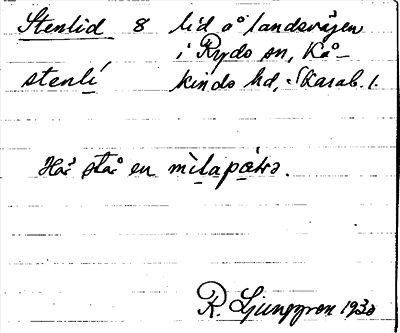 Stenlid 8 lid å landsvägen
i Ryda sn, Kå-
stenlí kinds hd, Skarab. l.
Här står en
R. Ljunggren 1930